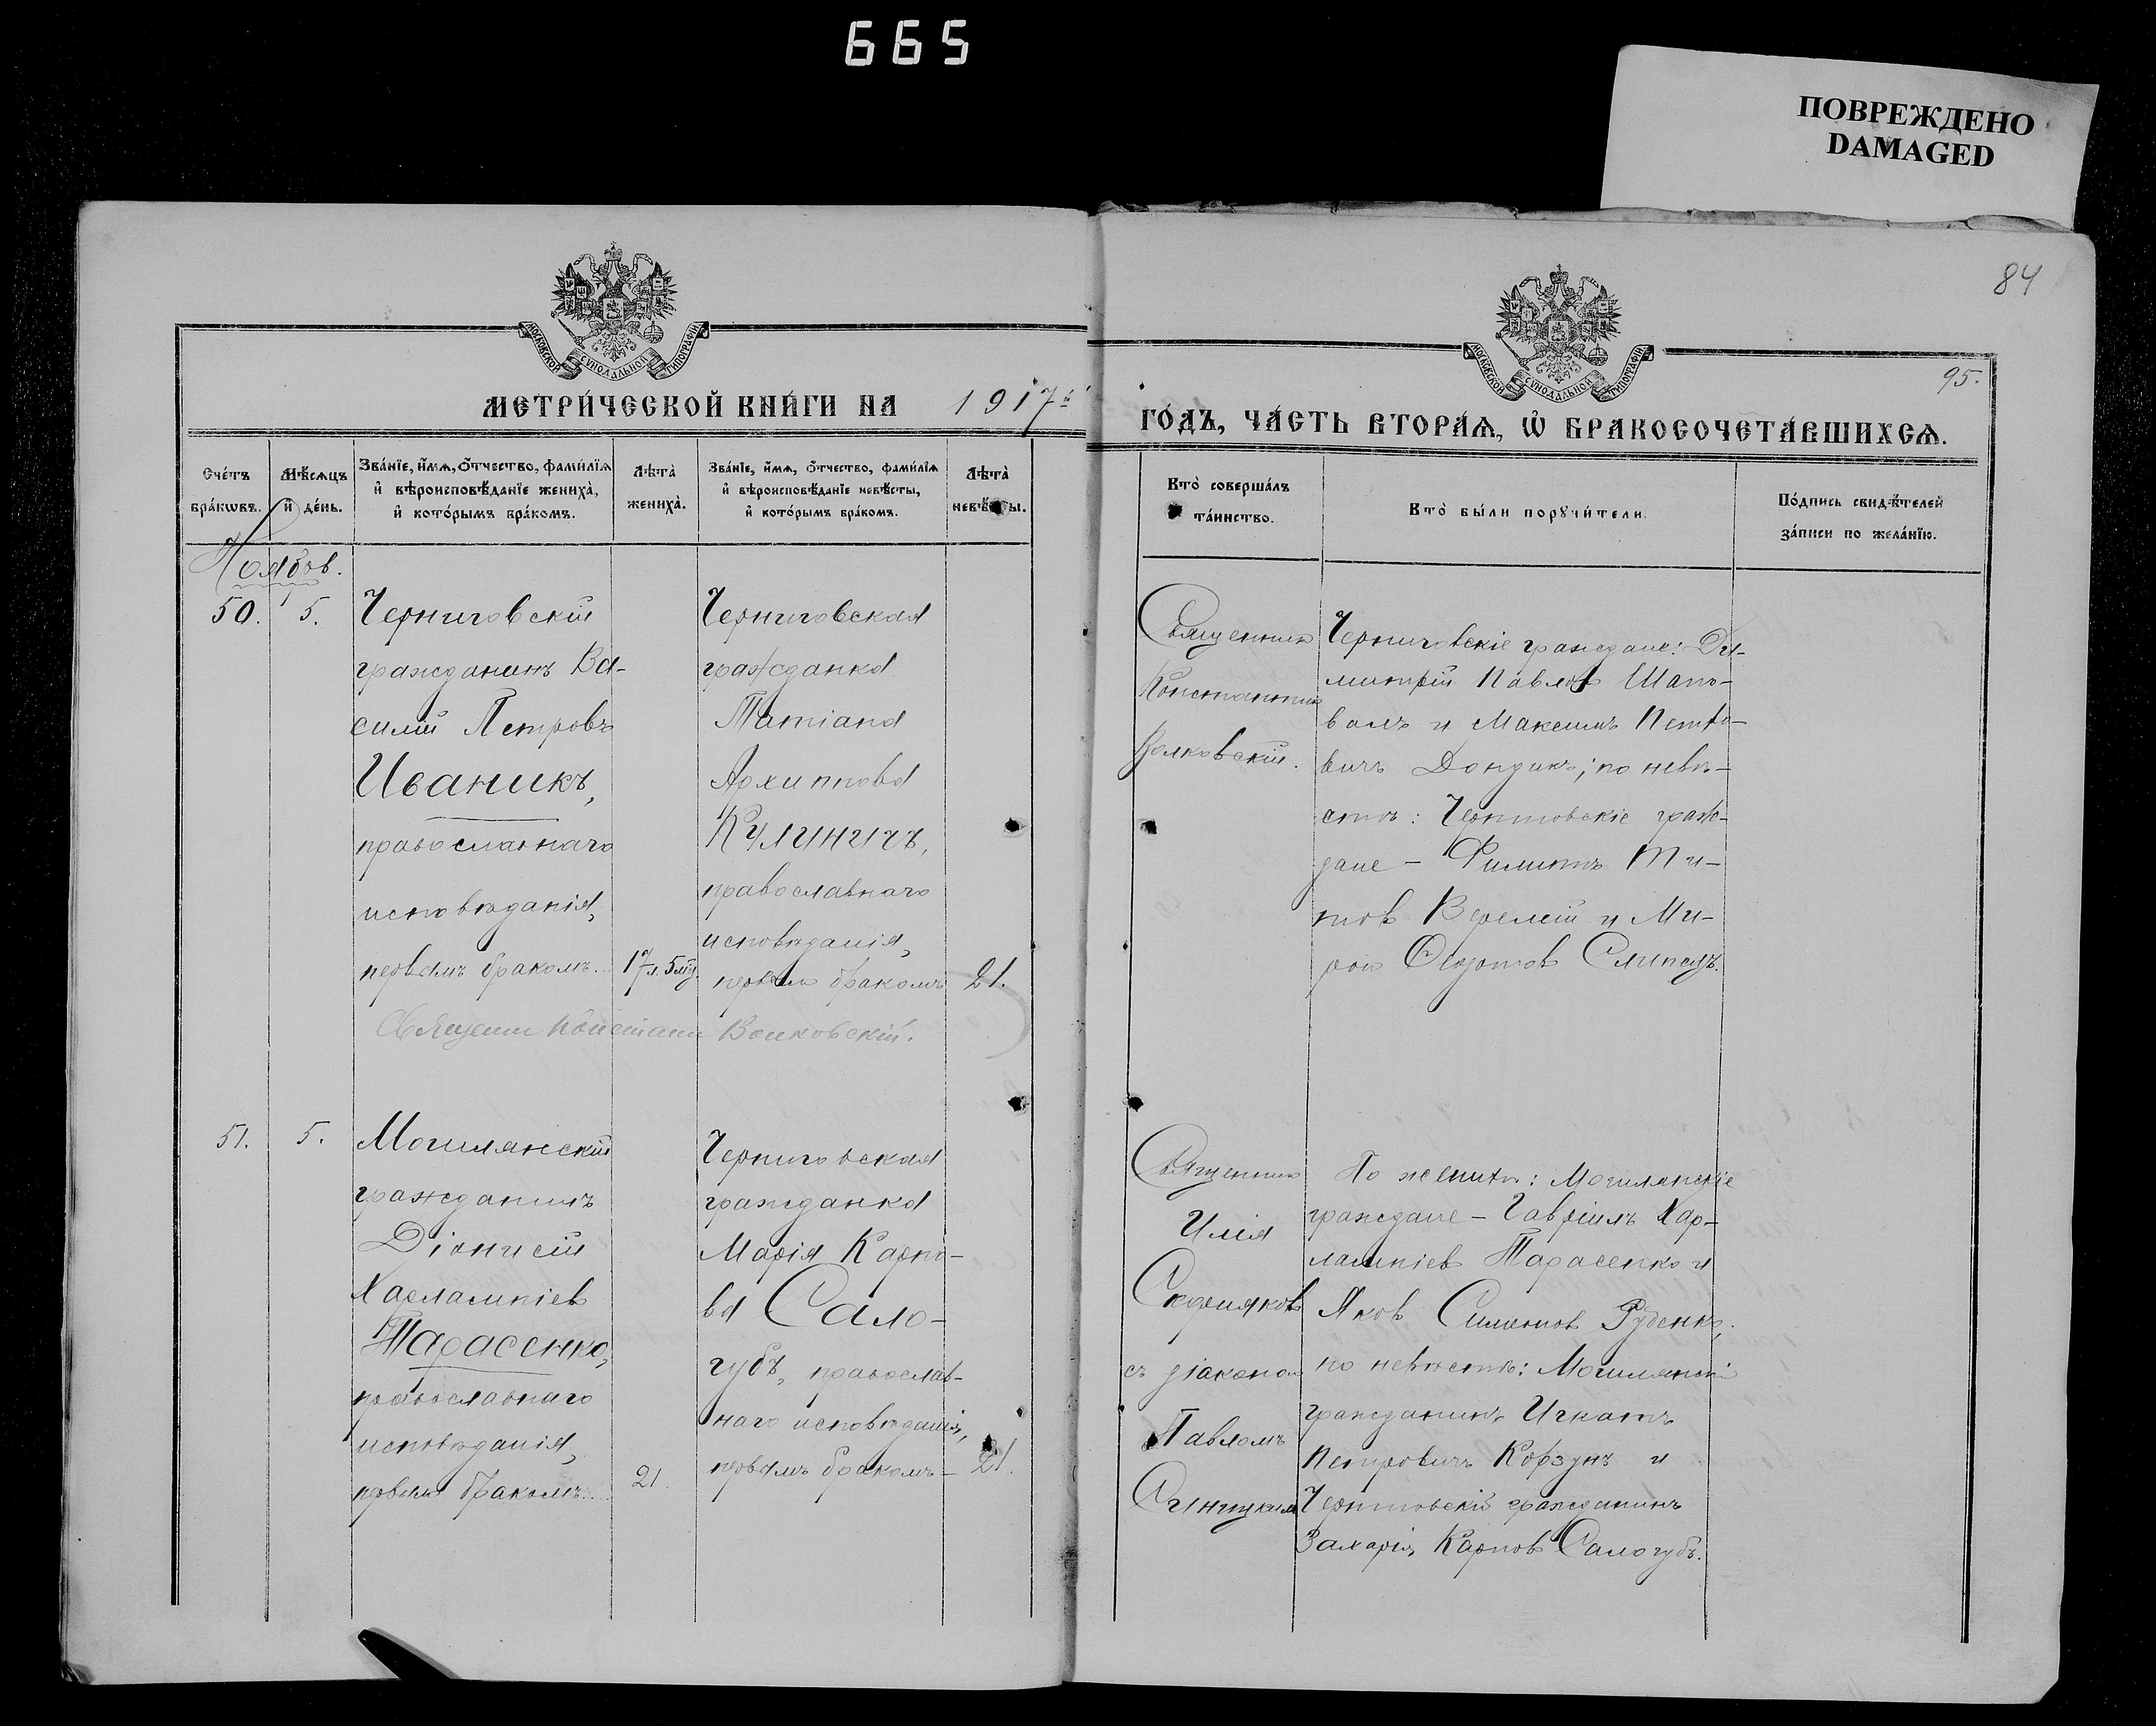 665
ПОВРЕЖДЕНО
DAMAGED
84
МОСКОВСКОЙ СУНОДАЛЬНОЙ ТИПОГРАФІИ
МОСКОВСКОЙ СУНОДАЛЬНОЙ ТИПОГРАФІИ
95.
МЕТРИ́ЧЕСКОЙ КНИ́ГИ НА 1917й
ГО́ДЪ, ЧА́СТЬ ВТОРА́Ѧ, Ѡ҆ БРАКОСОЧЕТА́ВШИХСѦ.
Сче́тъ бра́кѡвъ.
Мѣ́сѧцъ и҆ де́нь.
Зва́нїе, и҆́мѧ, ѻ҆́тчество, фами́лїѧ
и҆ вѣроисповѣ́данїе жениха̀,
и҆ кото́рымъ бра́комъ.
Лѣта̀ жениха̀.
Зва́нїе, и҆́мѧ, ѻ҆́тчество, фами́лїѧ
и҆ вѣроисповѣ́данїе невѣ́сты,
и҆ кото́рымъ бра́комъ.
Лѣта̀ невѣ́сты.
Кто̀ соверша́лъ
та́инство.
Кто̀ бы́ли порꙋчи́тели.
По́дпись свидѣ́телей
за́писи по жела́нїю.
Ноябрь.
50.
5.
Черниговскій
гражданинъ Ва-
силій Петровъ
Иваникъ,
православнаго
исповѣданія,
первымъ бракомъ..
17 л. 5 мц.
Черниговская
гражданка
Татіана
Архипова
Кулиничъ,
православнаго
исповѣданія,
первымъ бракомъ
21.
Священник Констант Волковскій.
Священник
Константин
Волковскій.
Черниговскіе граждане: Ди-
митрій Павлов Шапо-
валъ и Максимъ Петро-
вичъ Дондик; по невѣ-
стѣ: Черниговскіе граж-
дане - Филиппъ Ти-
тов Веремій и Ми-
рон
51.
5.
Могилянскій
гражданинъ
Діонисій
Харлампіев
Тарасенко,
православнаго
исповѣданія,
первымъ бракомъ...
21.
Черниговская
гражданка
Марія Карпо-
ва Сало-
губъ, православ-
наго исповѣданія,
первымъ бракомъ -
21.
Священник
Илія
Скорняков
съ діаконом
Павломъ
Синицким
По женихѣ: Могилянскіе
граждане - Гавріилъ Хар-
лампіев Тарасенко и
Яков Симеонов Руденко,
по невѣстѣ: Могилянскій
гражданинъ Игнатъ
Петровичъ Корзунъ и
Черниговскій гражданинъ
Захарія Карпов Салогубъ.